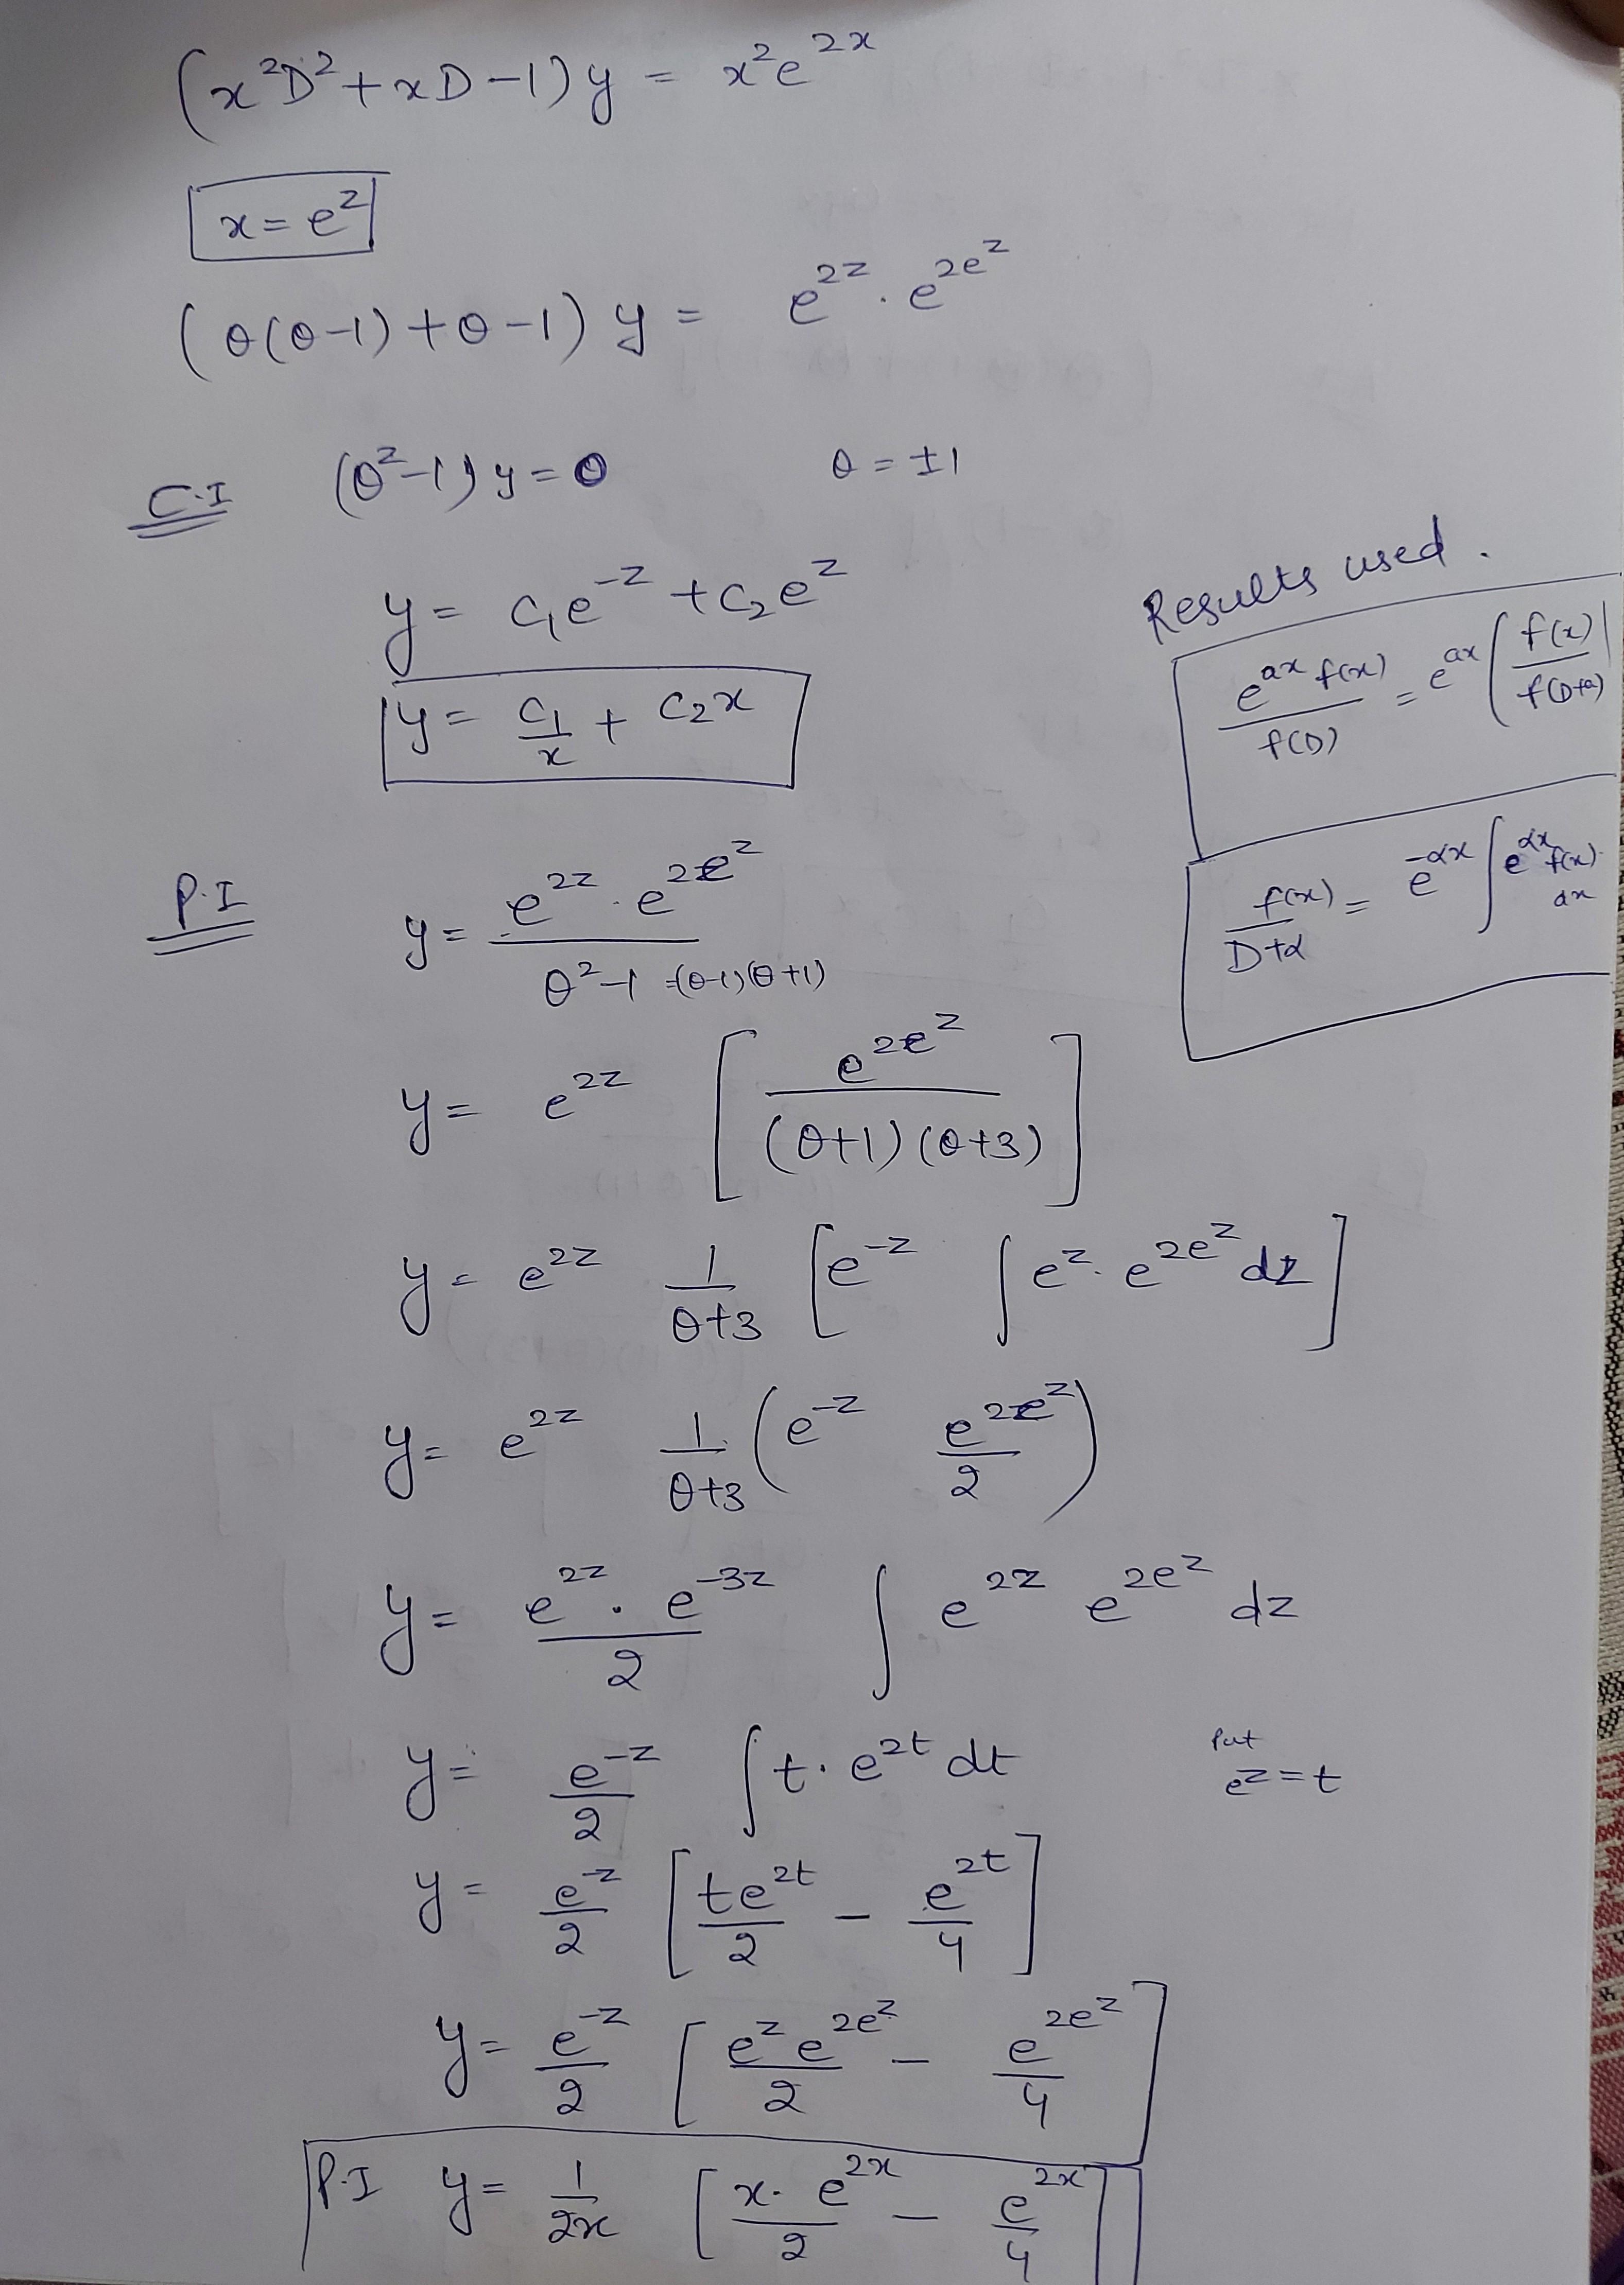 (x²D² + xD - 1) y = x²e^{2x}
x = e^z
(θ(θ-1) + θ - 1) y = e^{2z} . e^{2e^z}
C.I (θ² - 1) y = 0 θ = ±1
y = c₁e^{-z} + c₂e^z
y = c₁/x + c₂x
Results used.
e^{ax} f(x) / f(D) = e^{ax} ( f(x) / f(D+a)
f(x) / D+α = e^{-αx} ∫ e^{αx} f(x) dx
P.I y = e^{2z} . e^{2e^z} / θ² - 1 = (θ-1)(θ+1)
y = e^{2z} [ e^{2e^z} / (θ+1)(θ+3) ]
y = e^{2z} 1/θ+3 [ e^{-z} ∫ e^z . e^{2e^z} dz ]
y = e^{2z} 1/θ+3 ( e^{-z} e^{2e^z}/2 )
y = e^{2z} . e^{-3z} / 2 ∫ e^{2z} e^{2e^z} dz
y = e^{-z}/2 ∫ t . e^{2t} dt put e^z = t
y = e^{-z}/2 [ te^{2t}/2 - e^{2t}/4 ]
y = e^{-z}/2 [ e^z e^{2e^z}/2 - e^{2e^z}/4 ]
P.I y = 1/2x [ x. e^{2x}/2 - e^{2x}/4 ]